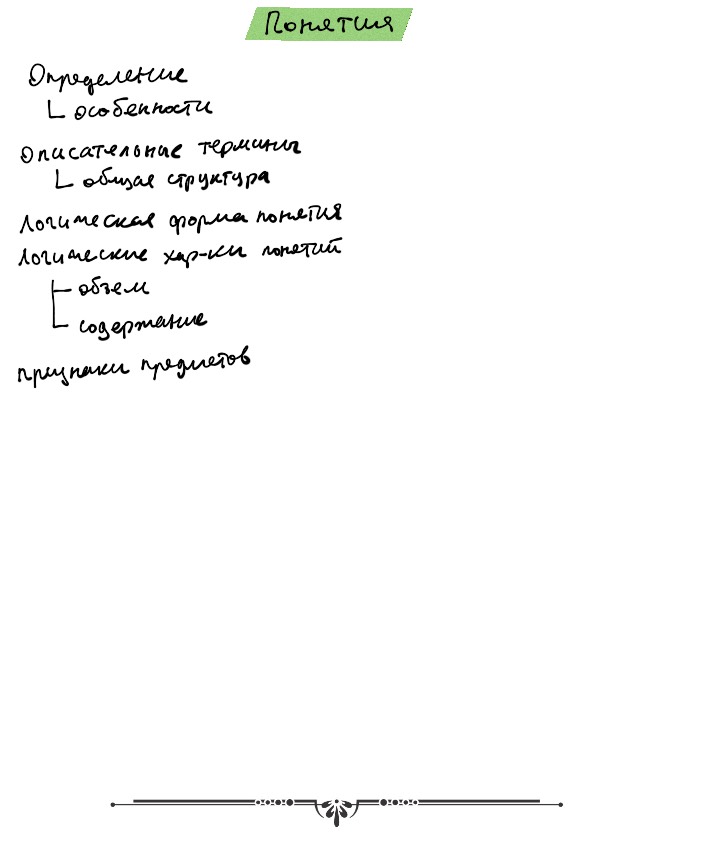 Понятия
Определение
особенности
описательные термины
общая структура
логическая форма понятия
логические хар-ки понятий
обзем
содержание
признаки предметов